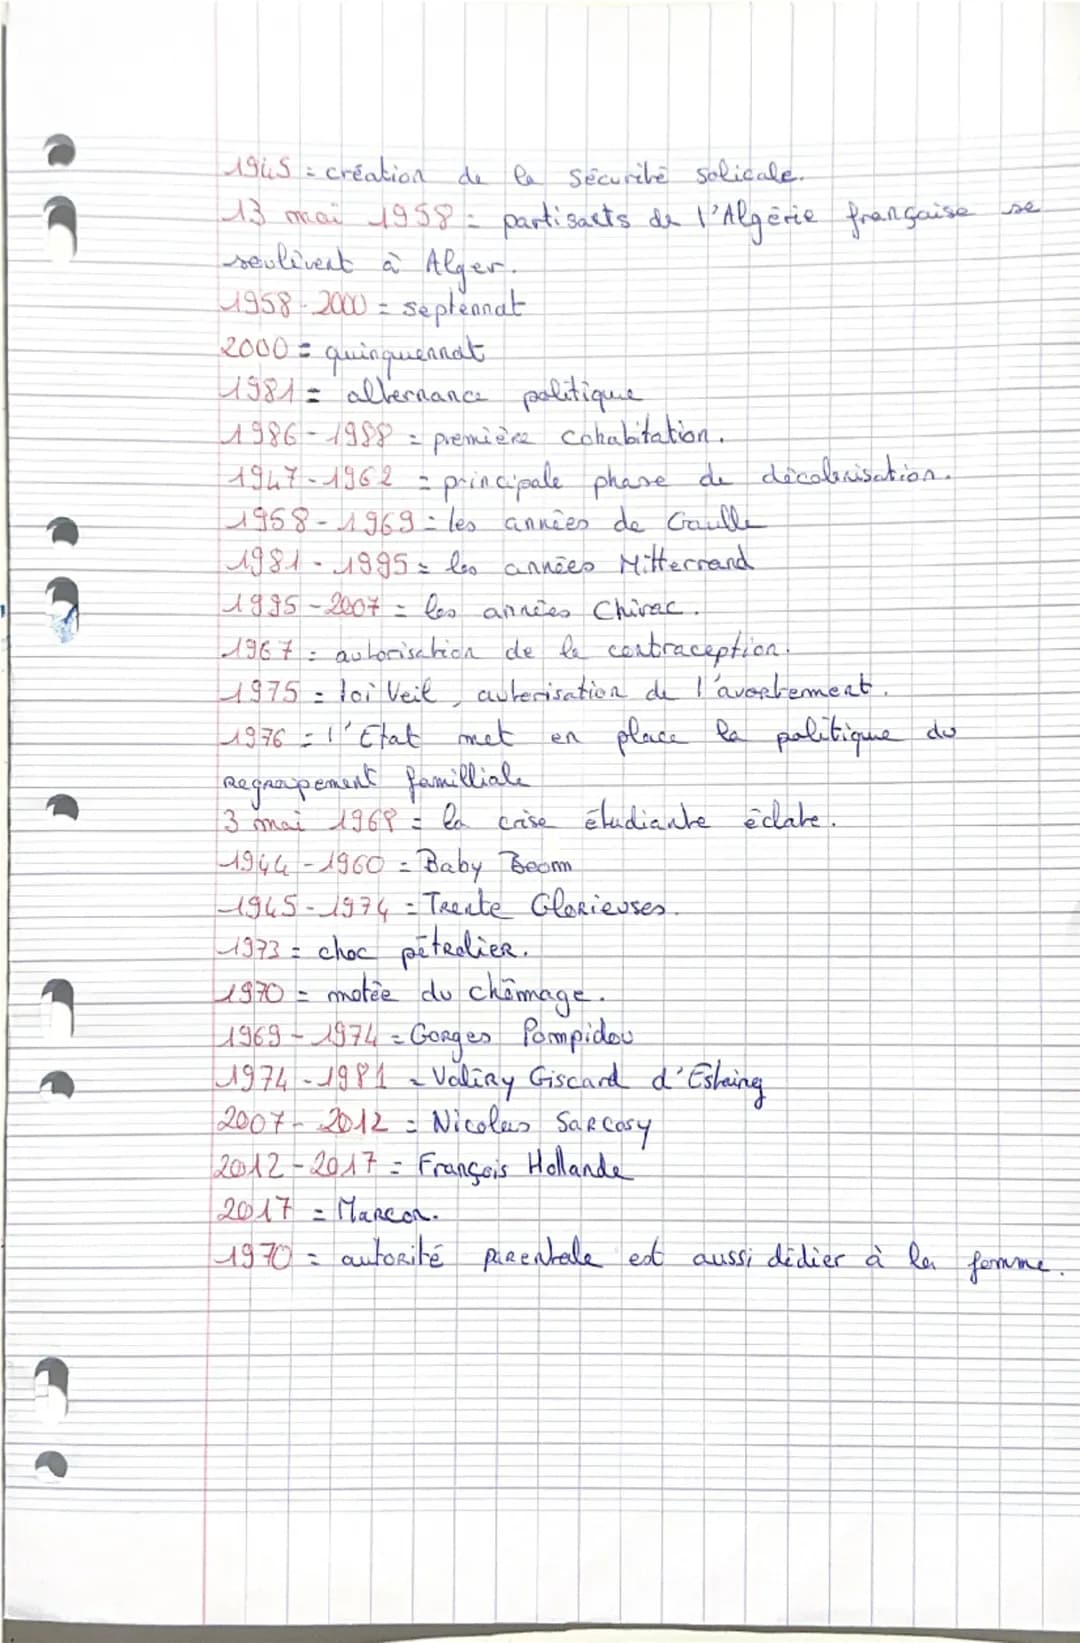 1945 = création de la sécurité solicale.
13 mai 1958 = partisants de l'Algérie française se
soulèvent à Alger.
1958-2000 = septennat
2000 = quinquennat
1981 = alternance politique
1986-1988 = première cohabitation.
1947-1962 = principale phase de décolonisation.
1958-1969 = les années de Gaulle
1981-1995 = les années Mitterrand
1995-2007 = les années Chirac.
1967 = autorisation de la contraception.
1975 = loi Veil, autorisation de l'avortement.
1976 = l'Etat met en place la politique du
Regroupement familliale
3 mai 1968 = la crise étudiante éclate.
1944-1960 = Baby Boom
1945-1974 = Trente Glorieuses.
1973 = choc pétrolier.
1970 = motée du chômage.
1969-1974 = Gorges Pompidou
1974-1981 = Valéry Giscard d'Estaing
2007-2012 = Nicolas Sarcosy
2012-2017 = François Hollande
2017 = Marcon.
1970 = autorité parentale est aussi dédier à la femme.